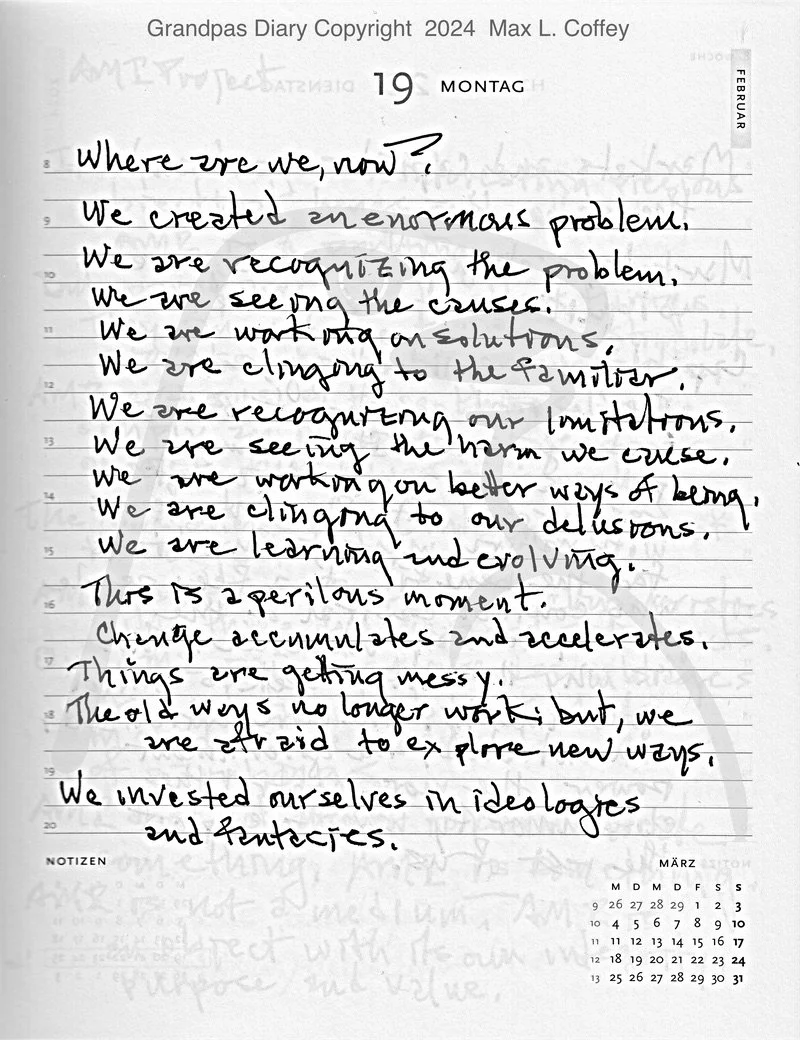 Grandpas Diary Copyright 2024 Max L. Coffey
19 MONTAG
FEBRUAR
AMI Project
8 Where are we, now?
9 We created an enormous problem.
10 We are recognizing the problem.
We are seeing the causes.
11 We are working on solutions.
12 We are clinging to the familiar.
We are recognizing our limitations.
13 We are seeing the harm we cause.
We are working on better ways of being.
14 We are clinging to our delusions.
15 We are learning and evolving.
16 This is a perilous moment.
Change accumulates and accelerates.
17 Things are getting messy.
18 The old ways no longer work; but, we
are afraid to explore new ways.
19 We invested ourselves in ideologies
20 and fantacies.
NOTIZEN
MÄRZ
M D M D F S S
9 26 27 28 29 1 2 3
10 4 5 6 7 8 9 10
11 11 12 13 14 15 16 17
12 18 19 20 21 22 23 24
13 25 26 27 28 29 30 31
is not a medium.
with its own
purpose and value.